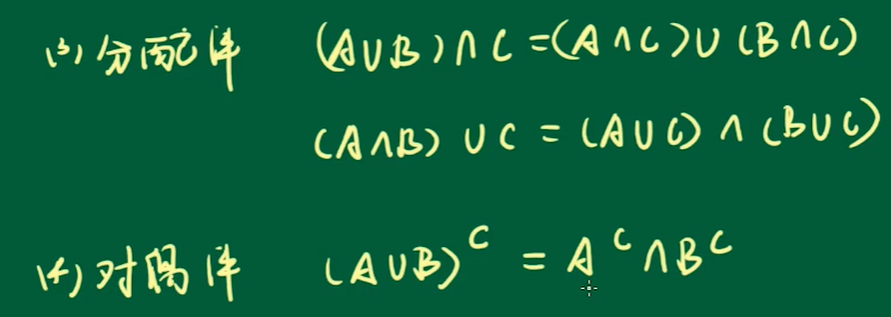 (3) 分配律 (A∪B)∩C=(A∩C)∪(B∩C)
(A∩B)∪C=(A∪C)∩(B∪C)
(4) 对偶律 (A∪B)ᶜ=Aᶜ∩Bᶜ